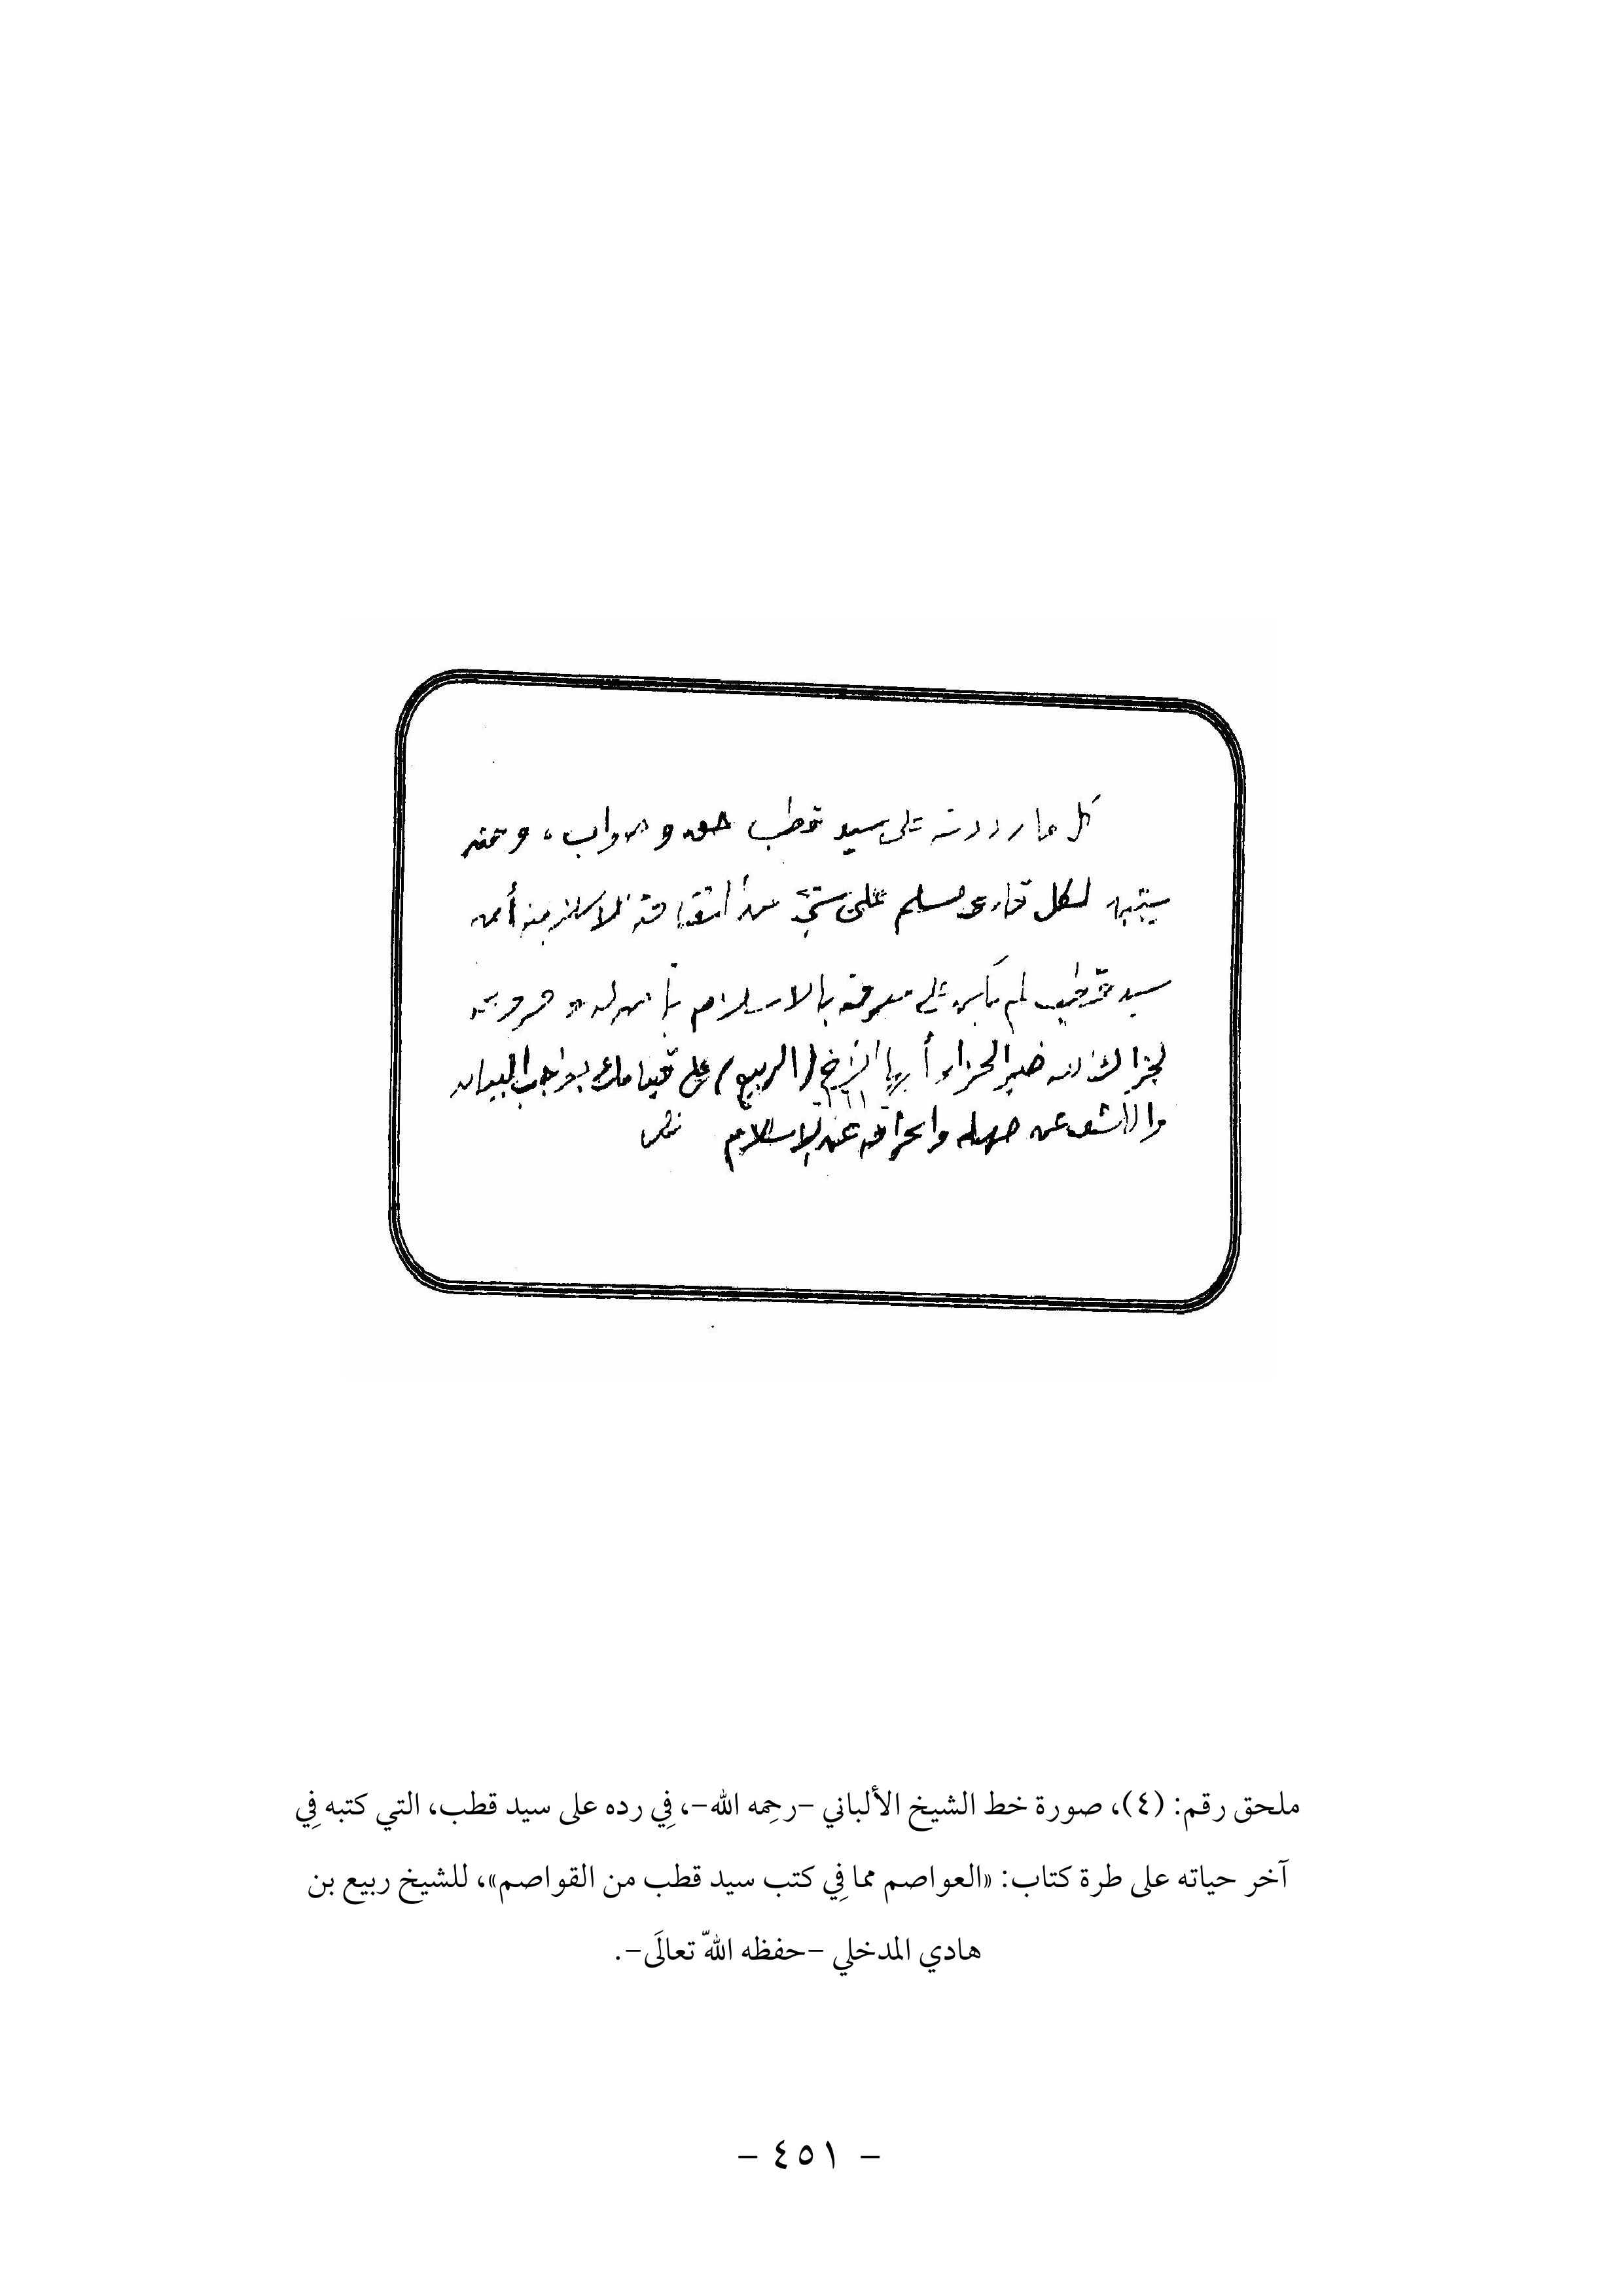 كل ما رددته على سيد قطب حق وصواب، ومنه
يتبين لكل قارئ مسلم على شيء من الثقافة الإسلامية أن
سيد قطب لم يكن على معرفة بالإسلام بأصوله وفروعه
فجزاك الله خير الجزاء أيها الأخ (الربيع) على قيامك بواجب البيان
والكشف عن جهله وانحرافه عن الإسلام
ملحق رقم: (٤)، صورة خط الشيخ الألباني -رحِمه الله-، فِي رده على سيد قطب، التي كتبه فِي
آخر حياته على طرة كتاب: «العواصم مما فِي كتب سيد قطب من القواصم»، للشيخ ربيع بن
هادي المدخلي -حفظه اللهّ تعالَى-.
- ٤٥١ -